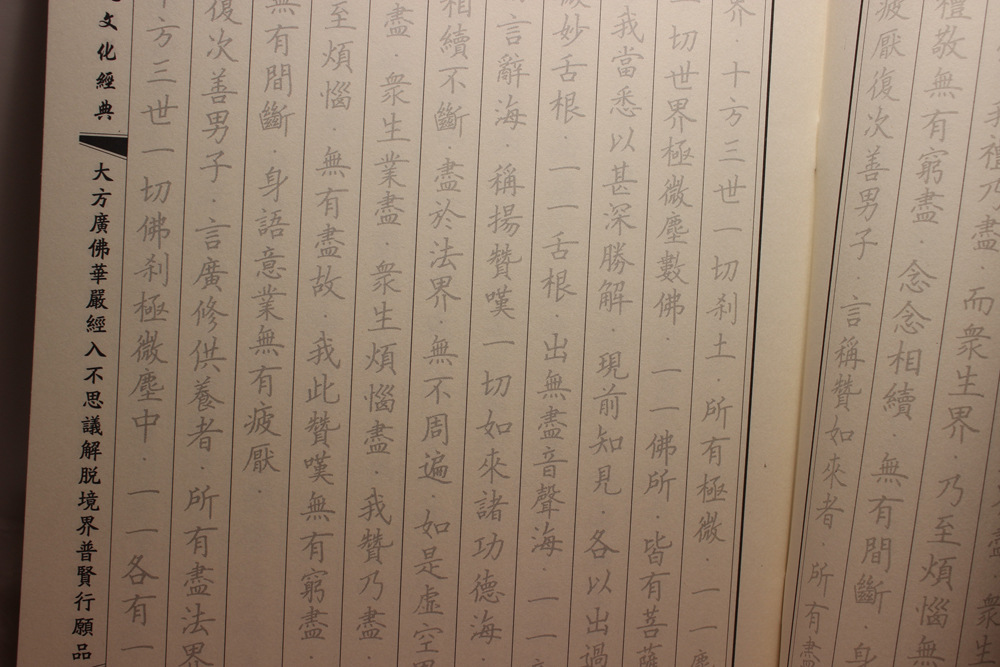 盡．衆生
我禮乃盡．而衆生界　乃至煩惱無
禮敬無有窮盡．念念相續．無有間斷．身
疲厭復次善男子　言稱讚如來者．所有盡
界．十方三世一切刹土．所有極微．一一塵
一切世界極微塵數佛．一一佛所．皆有菩薩
我當悉以甚深勝解．現前知見．各以出過
微妙舌根．一一舌根．出無盡音聲海．一一
言辭海．稱揚讚嘆一切如來諸功德海．
相續不斷．盡於法界．無不周遍．如是虛空界
盡．衆生業盡．衆生煩惱盡．我讚乃盡．
至煩惱　無有盡故．我此讚嘆無有窮盡．
無有間斷．身語意業無有疲厭．
復次善男子．言廣修供養者．所有盡法界
十方三世一切佛刹極微塵中．一一各有一
文化經典
大方廣佛華嚴經入不思議解脱境界普賢行願品